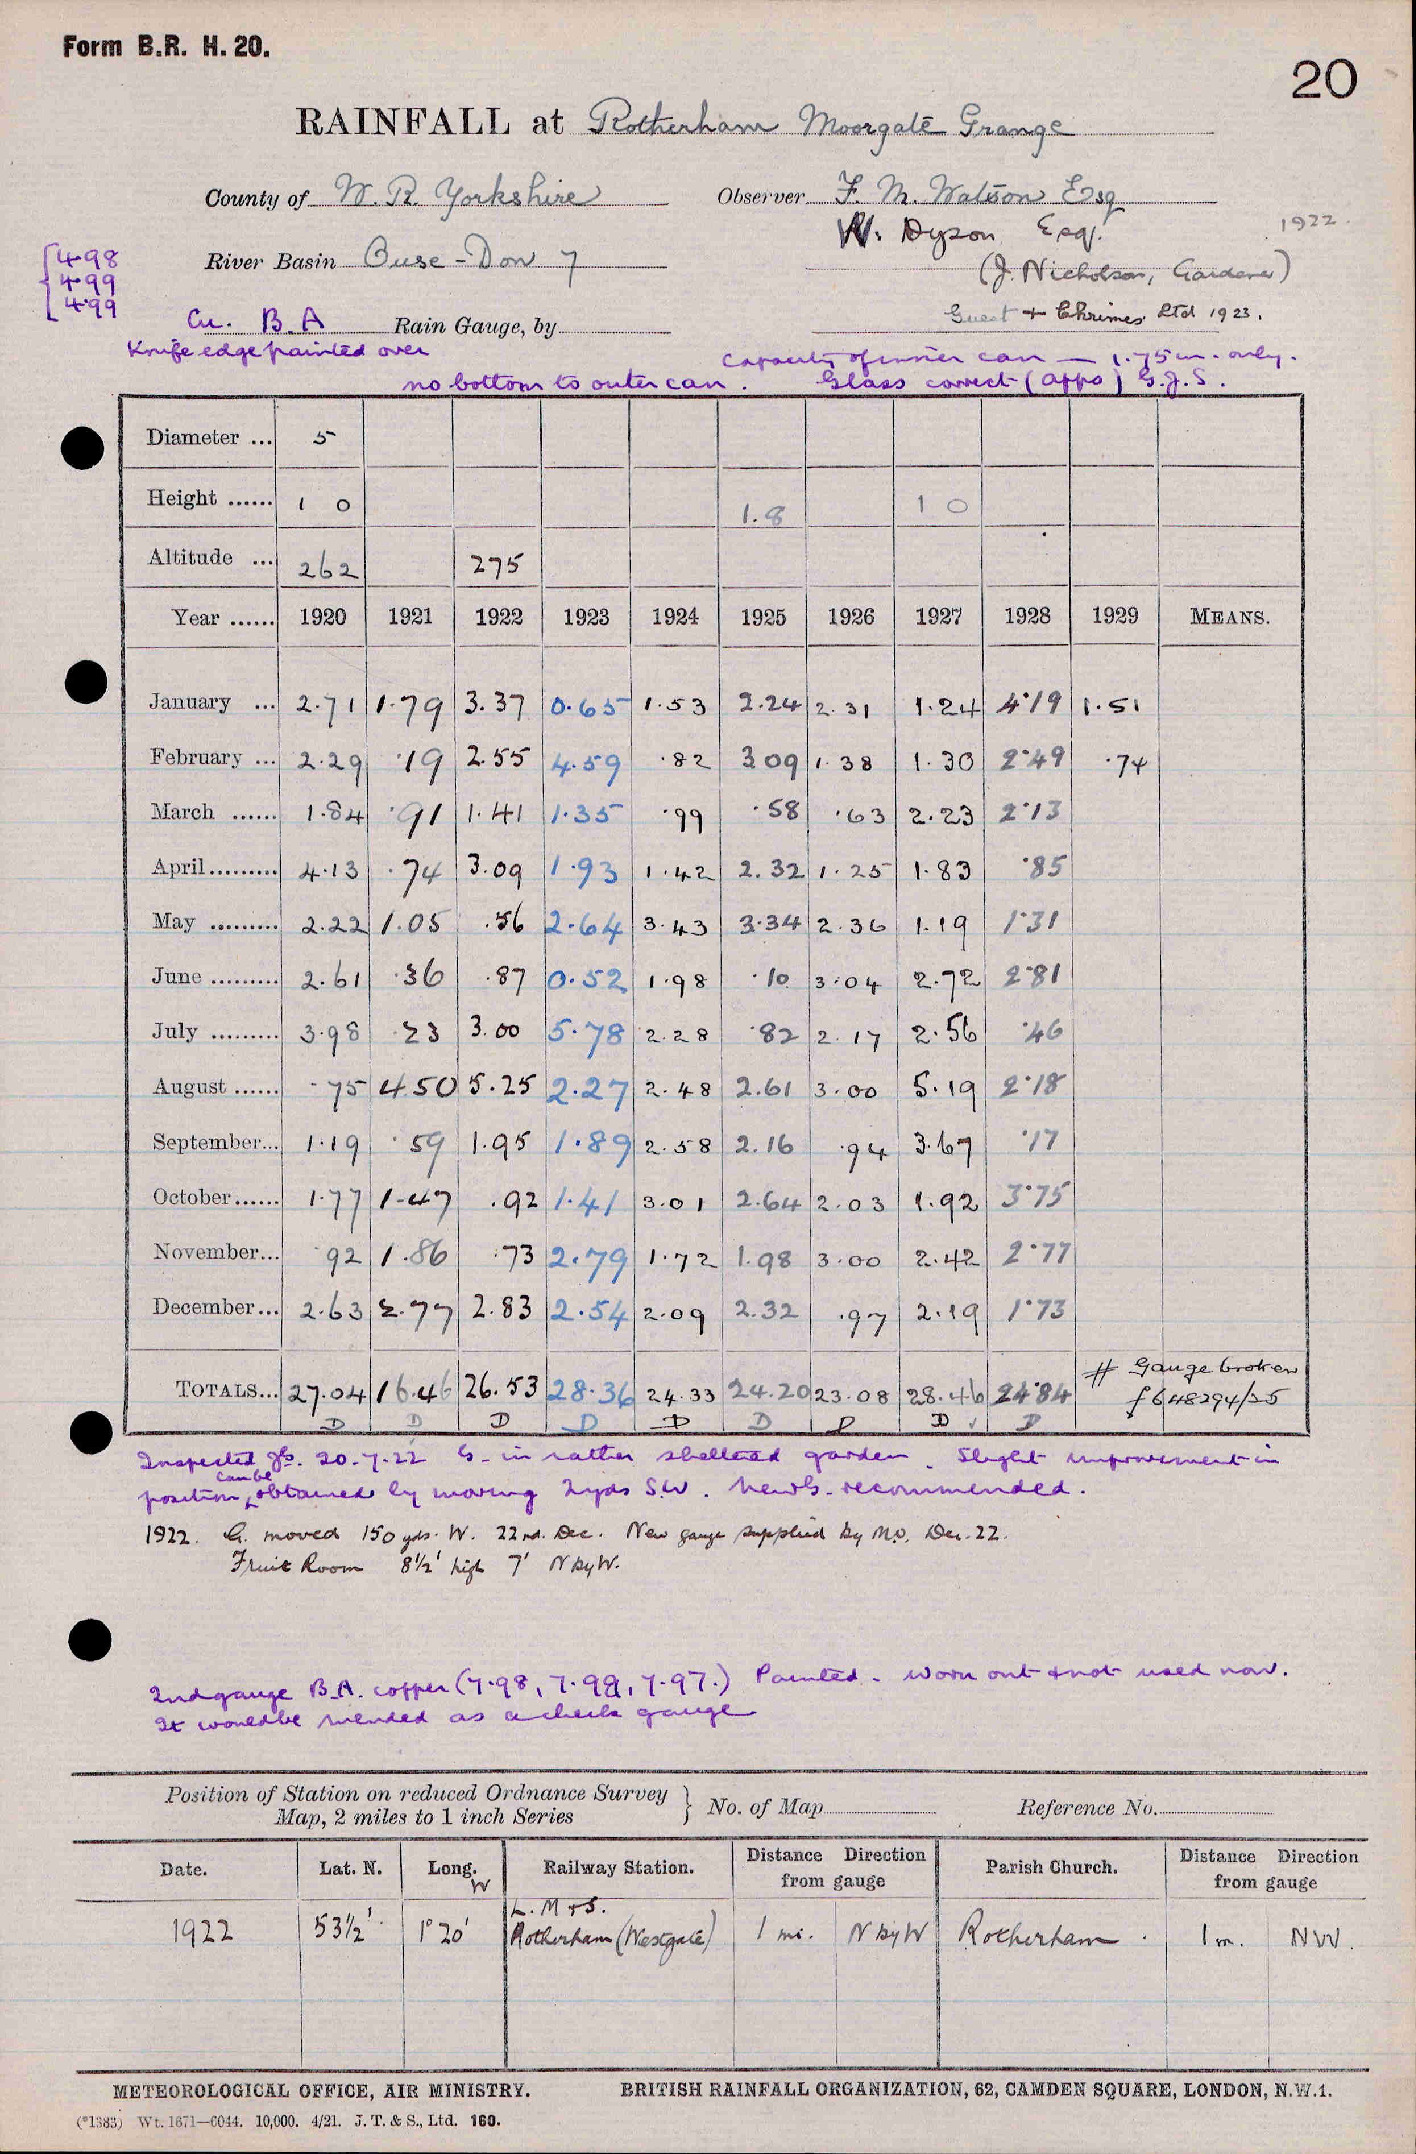 Form B.R. H. 20.
20
RAINFALL at Rotherham Moorgate Grange
County of W. R. Yorkshire Observer F. M. Watson Esq
W. Dyson Esq. 1922.
River Basin Ouse-Don 7 (J. Nicholson, Gardener)
4.98
4.99
4.99
Cu. B.A Rain Gauge, by Guest & Chrimes Ltd 1923.
Knife edge painted over Capacity of inner can — 1.75 in. only.
no bottom to outer can. Glass correct (appx) G.J.S.
Diameter ... 5
Height ...... 1 0 1.8 1 0
Altitude ... 262 275
Year ...... 1920 1921 1922 1923 1924 1925 1926 1927 1928 1929 MEANS.
January ... 2.71 1.79 3.37 0.65 1.53 2.24 2.31 1.24 4.19 1.51
February ... 2.29 .19 2.55 4.59 .82 3 09 1.38 1.30 2.49 .74
March ...... 1.84 .91 1.41 1.35 .99 .58 .63 2.23 2.13
April......... 4.13 .74 3.09 1.93 1.42 2.32 1.25 1.83 .85
May ......... 2.22 1.05 .56 2.64 3.43 3.34 2.36 1.19 1.31
June ......... 2.61 .36 .87 0.52 1.98 .10 3.04 2.72 2.81
July ......... 3.98 .23 3.00 5.78 2.28 .82 2.17 2.56 .46
August ...... .75 4.50 5.25 2.27 2.48 2.61 3.00 5.19 2.18
September... 1.19 .59 1.95 1.89 2.58 2.16 .94 3.67 .17
October...... 1.77 1.47 .92 1.41 3.01 2.64 2.03 1.92 3.75
November... .92 1.86 .73 2.79 1.72 1.98 3.00 2.42 2.77
December... 2.63 2.77 2.83 2.54 2.09 2.32 .97 2.19 1.73
TOTALS... 27.04 16.46 26.53 28.36 24.33 24.20 23.08 28.46 24.84 # Gauge broken
f 648294/25
D D D D D D D D D
Inspected 20.7.22 G. in rather sheltered garden. Slight improvement in
position can be obtained by moving 2 yds S.W. New G. recommended.
1922. G. moved 150 yds. W. 22nd. Dec. New gauge supplied by M.O. Dec. 22.
Fruit Room 8½' high 7' N by W.
2nd gauge B.A. copper (7.98, 7.99, 7.97.) Painted - worn out & not used now.
It would be mended as a check gauge
Position of Station on reduced Ordnance Survey
Map, 2 miles to 1 inch Series } No. of Map Reference No.
Date. Lat. N. Long. W Railway Station. Distance Direction from gauge Parish Church. Distance Direction from gauge
L. M & S.
1922 53½' 1° 20' Rotherham (Westgate) 1 mi. N by W Rotherham. 1 m. NW.
METEOROLOGICAL OFFICE, AIR MINISTRY. BRITISH RAINFALL ORGANIZATION, 62, CAMDEN SQUARE, LONDON, N.W.1.
(*1383) Wt. 1671—6044. 10,000. 4/21. J. T. & S., Ltd. 160.